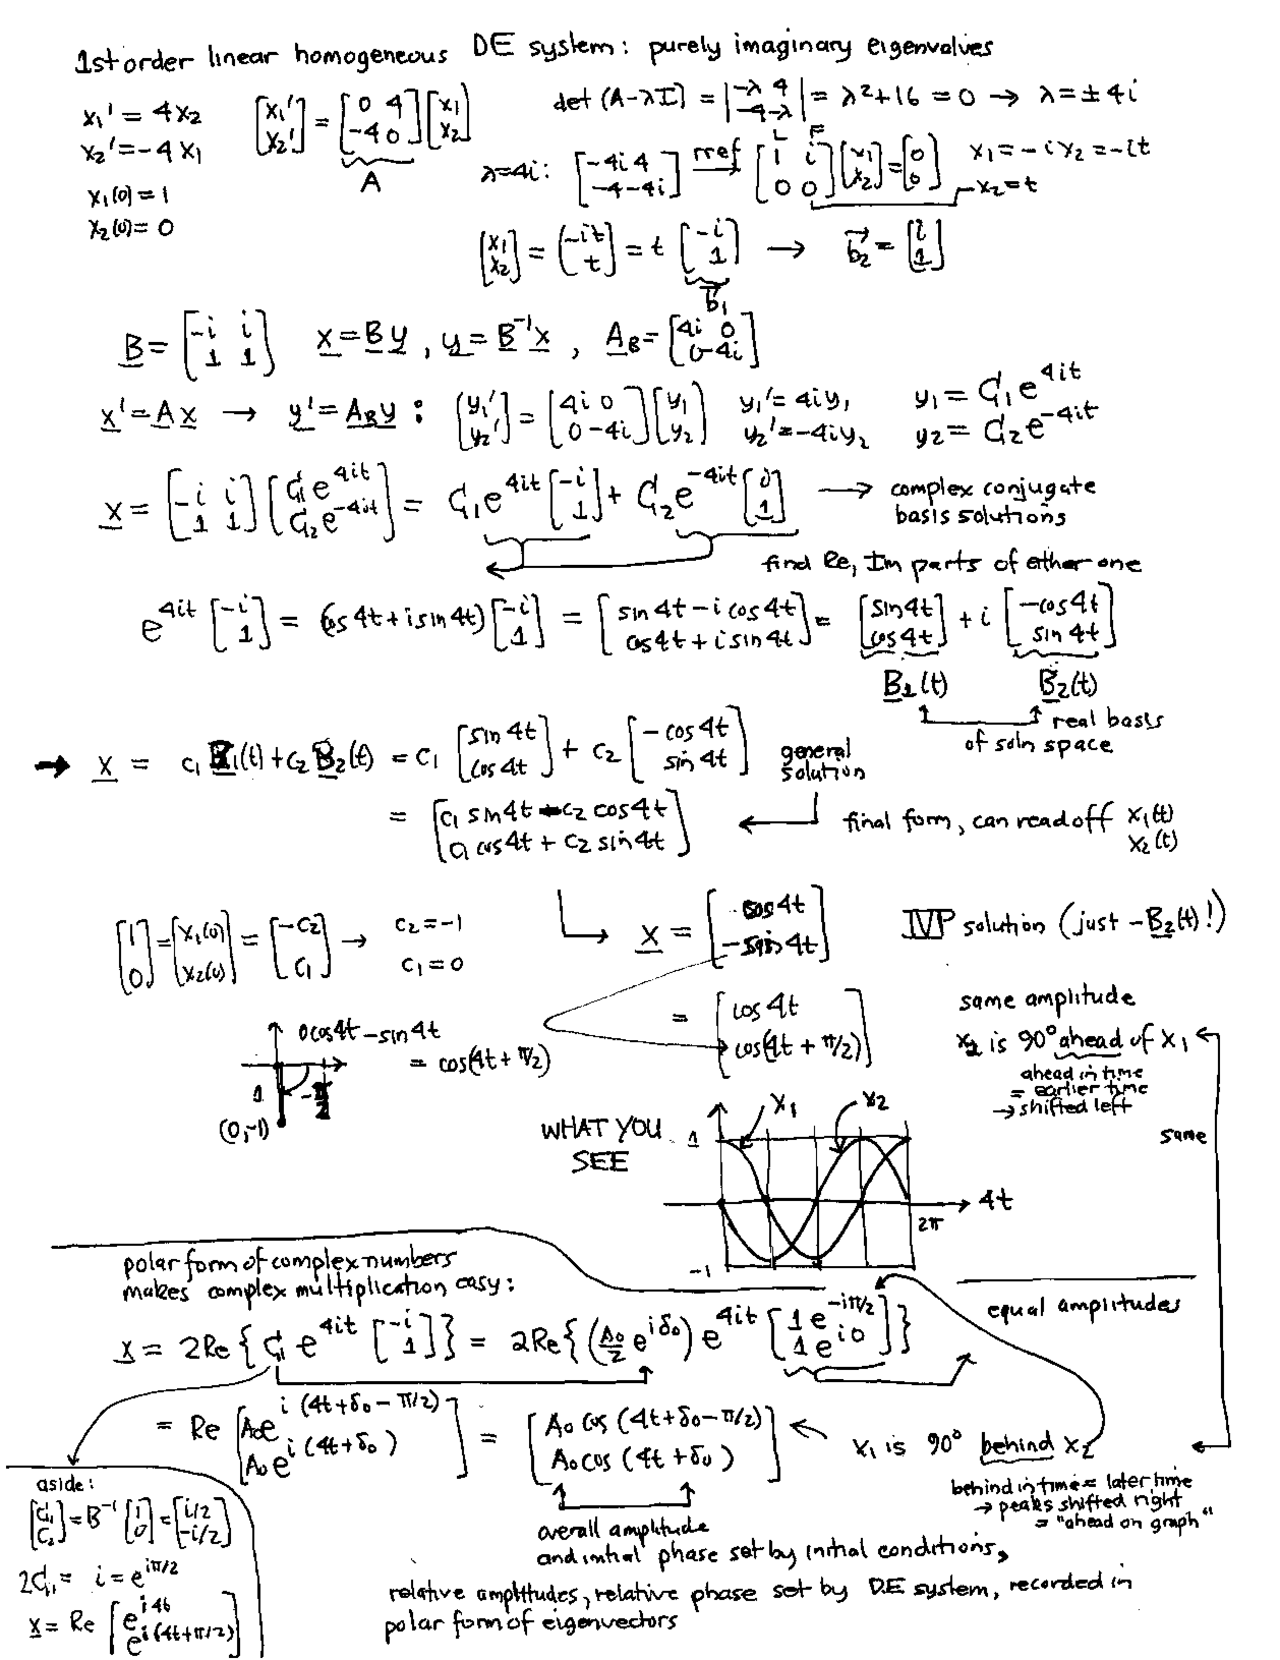 1st order linear homogeneous DE system: purely imaginary eigenvalues
x₁' = 4x₂
x₂' = -4x₁
x₁(0) = 1
x₂(0) = 0
[x₁' ; x₂'] = [0 4 ; -4 0] [x₁ ; x₂]
A
det (A-λI) = |-λ 4 ; -4 -λ| = λ²+16 = 0 → λ = ± 4i
λ=4i: [-4i 4 ; -4 -4i] rref → [1 i ; 0 0] [x₁ ; x₂] = [0 ; 0] x₁ = -ix₂ = -it
L F
x₂ = t
[x₁ ; x₂] = [-it ; t] = t [-i ; 1] → b₂ = [i ; 1]
b₁
B = [-i i ; 1 1] x = By, y = B⁻¹x, A_B = [4i 0 ; 0 -4i]
x' = Ax → y' = A_B y : [y₁' ; y₂'] = [4i 0 ; 0 -4i] [y₁ ; y₂] y₁' = 4iy₁ y₁ = C₁e^{4it}
y₂' = -4iy₂ y₂ = C₂e^{-4it}
x = [-i i ; 1 1] [C₁e^{4it} ; C₂e^{-4it}] = C₁e^{4it} [-i ; 1] + C₂e^{-4it} [i ; 1] → complex conjugate
basis solutions
find Re, Im parts of either one
e^{4it} [-i ; 1] = (cos 4t + i sin 4t) [-i ; 1] = [sin 4t - i cos 4t ; cos 4t + i sin 4t] = [sin 4t ; cos 4t] + i [-cos 4t ; sin 4t]
B₁(t) B₂(t)
real basis
of soln space
→ x = c₁ B₁(t) + c₂ B₂(t) = c₁ [sin 4t ; cos 4t] + c₂ [-cos 4t ; sin 4t] general
solution
= [c₁ sin 4t - c₂ cos 4t ; c₁ cos 4t + c₂ sin 4t] final form, can read off x₁(t)
x₂(t)
[1 ; 0] = [x₁(0) ; x₂(0)] = [-c₂ ; c₁] → c₂ = -1
c₁ = 0
x = [cos 4t ; -sin 4t] IVP solution (just -B₂(t)!)
= [cos 4t ; cos(4t + π/2)]
same amplitude
x₂ is 90° ahead of x₁
ahead in time
= earlier time
→ shifted left
same
0cos4t - sin4t
= cos(4t + π/2)
1
-π/2
(0,-1)
WHAT YOU
SEE
1
x₁ x₂
4t
2π
-1
polar form of complex numbers
makes complex multiplication easy:
x = 2Re{C₁ e^{4it} [-i ; 1]} = 2Re{(A₀/2 e^{iδ₀}) e^{4it} [1e^{-iπ/2} ; 1e^{i0}]}
equal amplitudes
= Re [A₀e^{i(4t+δ₀-π/2)} ; A₀e^{i(4t+δ₀)}] = [A₀cos(4t+δ₀-π/2) ; A₀cos(4t+δ₀)]
x₁ is 90° behind x₂
behind in time = later time
→ peaks shifted right
= "ahead on graph"
overall amplitude
and initial phase set by initial conditions,
relative amplitudes, relative phase set by DE system, recorded in
polar form of eigenvectors
aside:
[C₁ ; C₂] = B⁻¹ [1 ; 0] = [i/2 ; -i/2]
2C₁ = i = e^{iπ/2}
x = Re [e^{i4t} ; e^{i(4t+π/2)}]